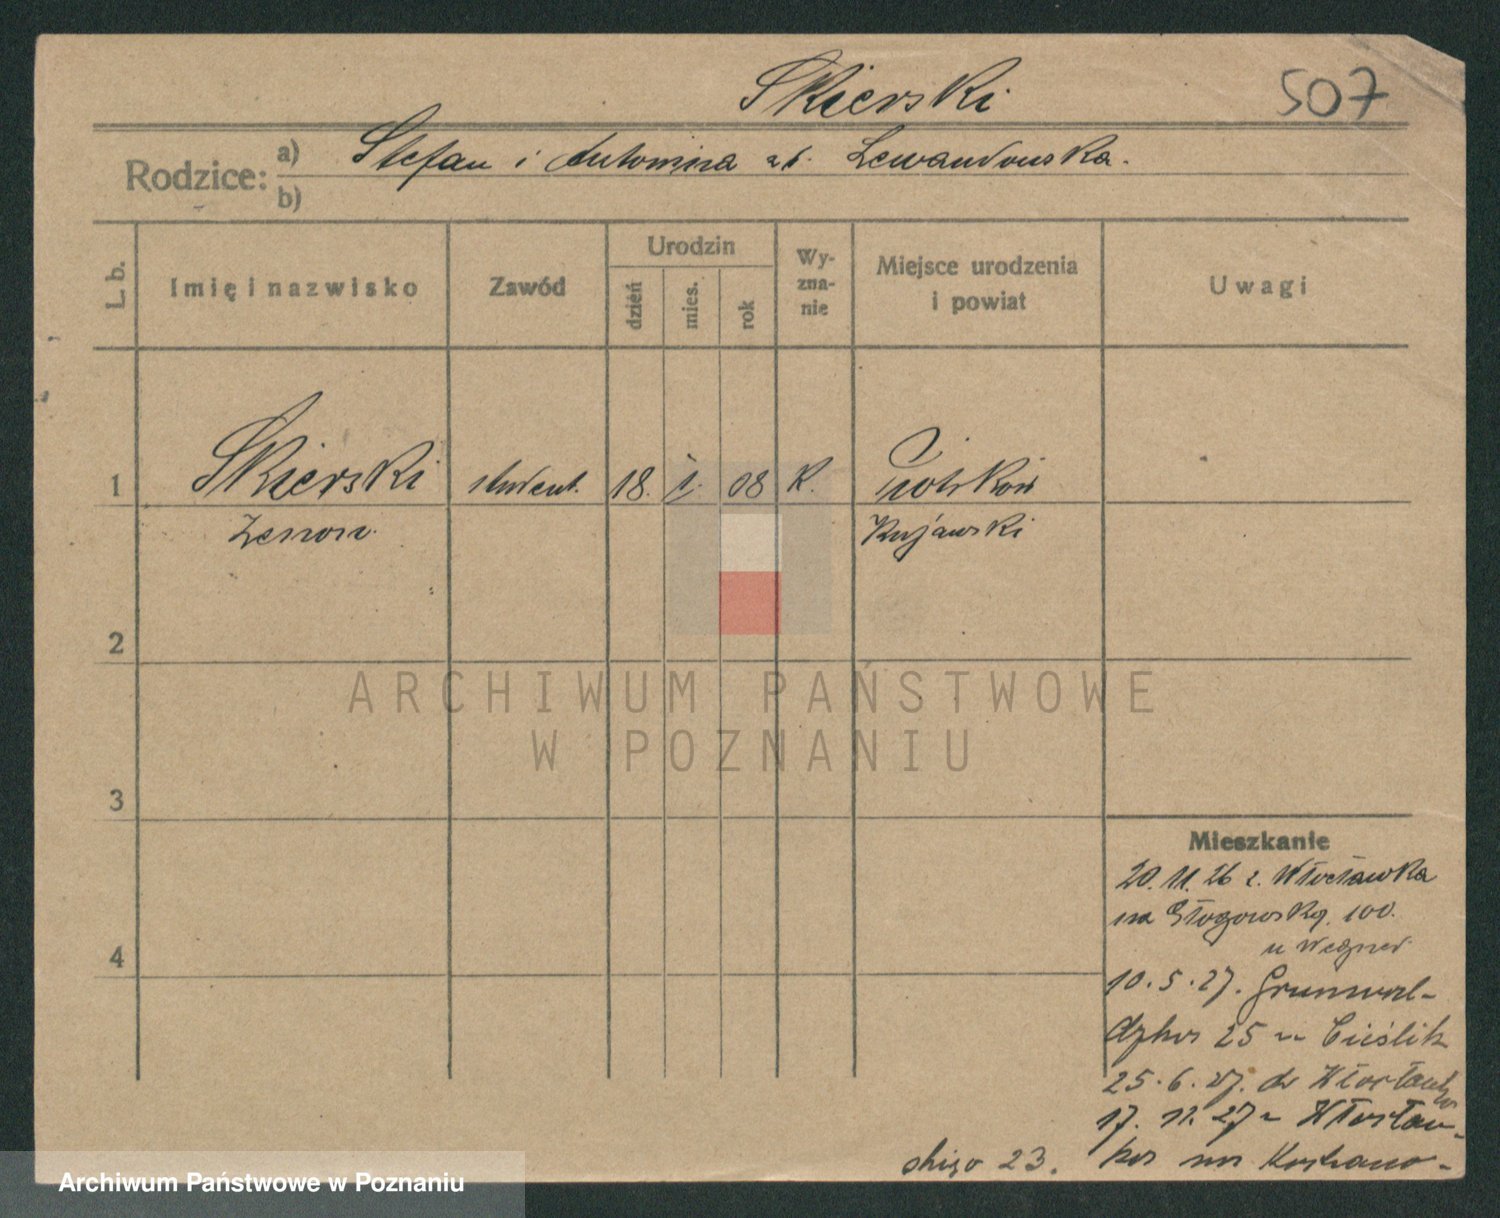 Skierski
507
Rodzice: a) Stefan i Antonina zd. Lewandowska.
b)
L. b.
Imię i nazwisko
Zawód
Urodzin
dzień
mies.
rok
Wy-
zna-
nie
Miejsce urodzenia
i powiat
Uwagi
1 Skierski student. 18. 1. 08 K. Piotrków
Zenon. Kujawski
2
ARCHIWUM PAŃSTWOWE
W POZNANIU
3
Mieszkanie
20. 11. 26 z. Włocławka
na Głogowską. 100.
u Wegner
4
10. 5. 27. Grunwal-
dzka 25 u Cieślik
25. 6. 27. do Włocławka
17. 11. 27 z Włocław-
ka na Kochano-
23.
Archiwum Państwowe w Poznaniu